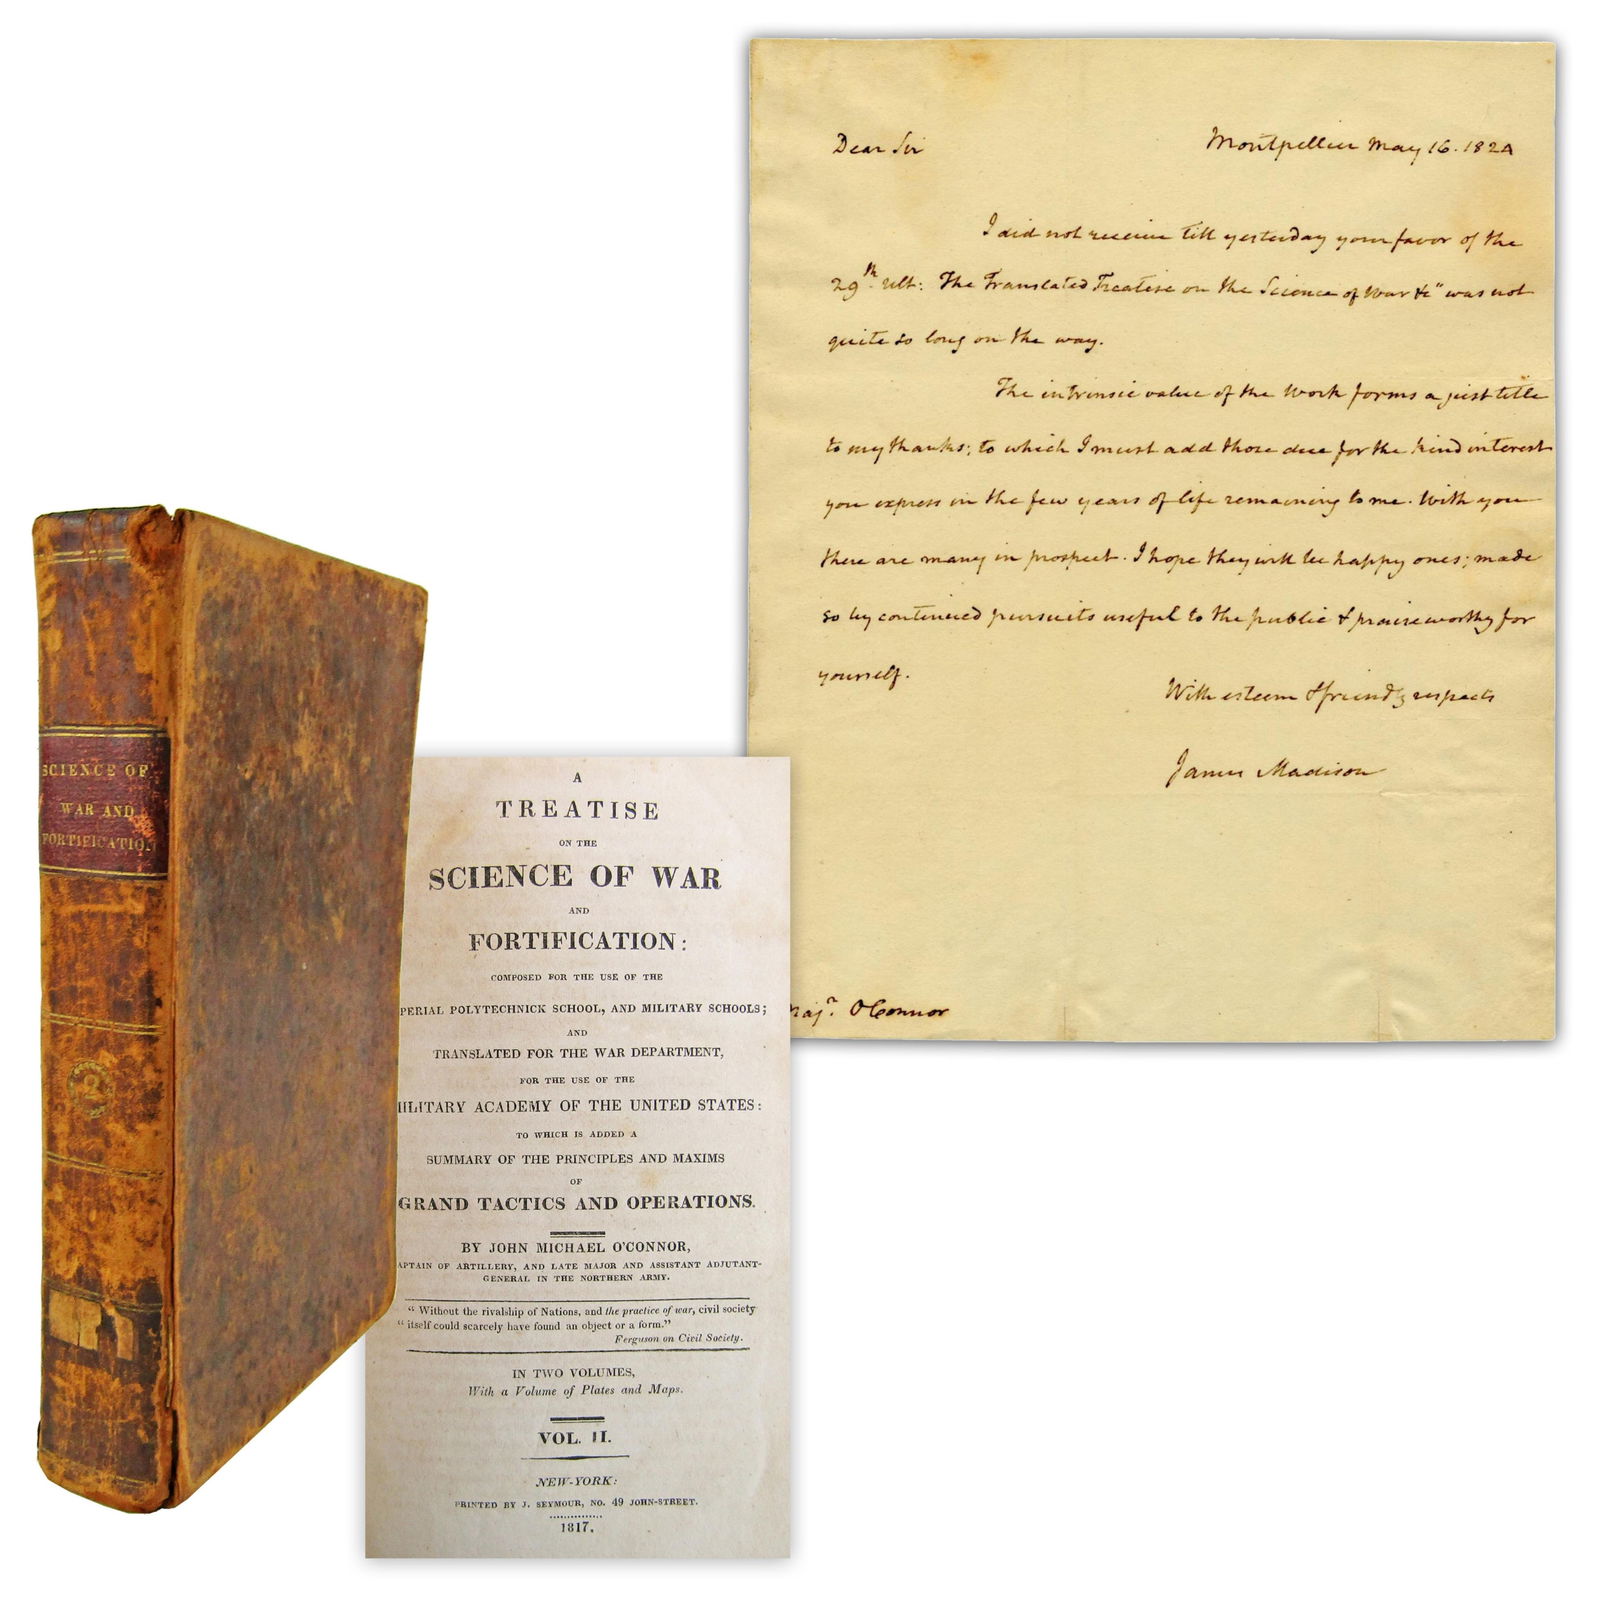 Dear Sir
Montpellier May 16. 1824
I did not receive till yesterday your favor of the
29th ult: The Translated Treatise on the Science of War &c" was not
quite so long on the way.
The intrinsic value of the Work forms a just title
to my thanks; to which I must add those due for the kind interest
you express in the few years of life remaining to me. With you
there are many in prospect. I hope they will be happy ones; made
so by continued pursuits useful to the public & praiseworthy for
yourself.
With esteem & friendly respects
James Madison
Majr. O'Connor
SCIENCE OF
WAR AND
FORTIFICATION
2
A
TREATISE
ON THE
SCIENCE OF WAR
AND
FORTIFICATION:
COMPOSED FOR THE USE OF THE
PERIAL POLYTECHNICK SCHOOL, AND MILITARY SCHOOLS;
AND
TRANSLATED FOR THE WAR DEPARTMENT,
FOR THE USE OF THE
MILITARY ACADEMY OF THE UNITED STATES:
TO WHICH IS ADDED A
SUMMARY OF THE PRINCIPLES AND MAXIMS
OF
GRAND TACTICS AND OPERATIONS.
BY JOHN MICHAEL O'CONNOR,
APTAIN OF ARTILLERY, AND LATE MAJOR AND ASSISTANT ADJUTANT-
GENERAL IN THE NORTHERN ARMY.
"Without the rivalship of Nations, and the practice of war, civil society
"itself could scarcely have found an object or a form."
Ferguson on Civil Society.
IN TWO VOLUMES,
With a Volume of Plates and Maps.
VOL. II.
NEW-YORK:
PRINTED BY J. SEYMOUR, NO. 49 JOHN-STREET.
1817.